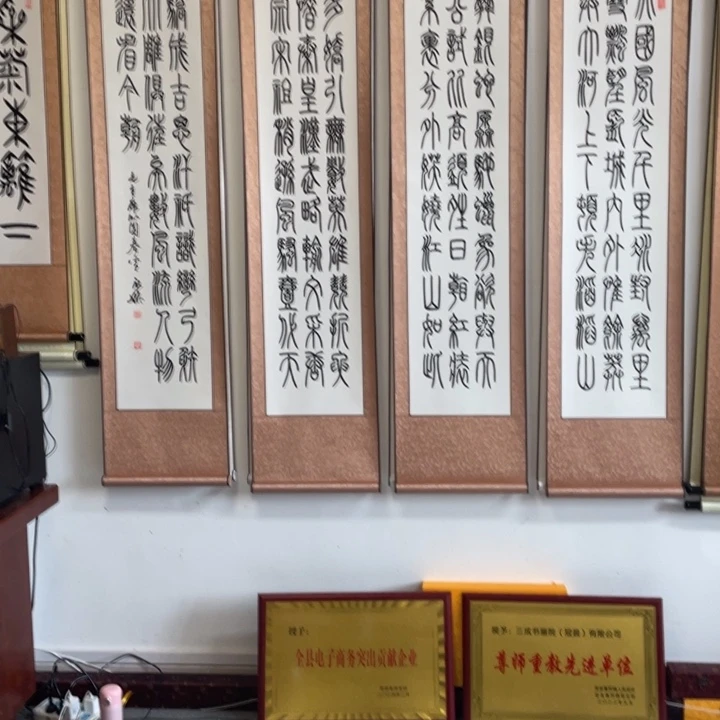 國風光千里冰封萬里
雪飄望長城內外惟餘莽
莽大河上下頓失滔滔山
舞銀蛇原馳蠟象欲與天
公試比高須晴日看紅裝
素裹分外妖嬈江山如此
多嬌引無數英雄競折腰
惜秦皇漢武略輸文采唐
宗宋祖稍遜風騷一代天
驕成吉思汗祇識彎弓射
大雕俱往矣數風流人物
還看今朝
采菊東籬下
授予:
全县电子商务突出贡献企业
授予:三成书画院
有限公司
尊师重教先进单位